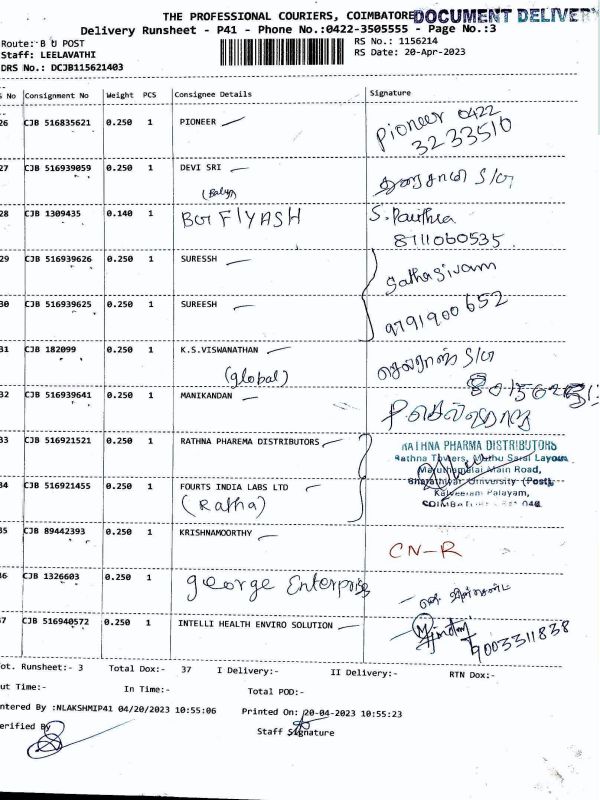 THE PROFESSIONAL COURIERS, COIMBATORE DOCUMENT DELIVERY
Delivery Runsheet - P41 - Phone No.:0422-3505555 - Page No.:3
Route: B U POST
RS No.: 1156214
Staff: LEELAVATHI
RS Date: 20-Apr-2023
DRS No.: DCJB115621403
S No Consignment No Weight PCS Consignee Details Signature
26 CJB 516835621 0.250 1 PIONEER Pioneer 0422
3233510
27 CJB 516939059 0.250 1 DEVI SRI
28 CJB 1309435 0.140 1 FLYASH S. Pavithra
8111060535
29 CJB 516939626 0.250 1 SURESSH Sathasivam
30 CJB 516939625 0.250 1 SUREESH 9791900652
31 CJB 182099 0.250 1 K.S.VISWANATHAN
(global)
32 CJB 516939641 0.250 1 MANIKANDAN
33 CJB 516921521 0.250 1 RATHNA PHAREMA DISTRIBUTORS RATHNA PHARMA DISTRIBUTORS
Rathna Towers, Muthu Sarai Layout,
Maruthamalai Main Road,
Bharathiyar University (Post),
Kalveerani Palayam,
34 CJB 516921455 0.250 1 FOURTS INDIA LABS LTD
(Ratha)
35 CJB 89442393 0.250 1 KRISHNAMOORTHY CN-R
36 CJB 1326603 0.250 1 george Enterprise
37 CJB 516940572 0.250 1 INTELLI HEALTH ENVIRO SOLUTION 9003311838
ot. Runsheet:- 3 Total Dox:- 37 I Delivery:- II Delivery:- RTN Dox:-
ut Time:- In Time:- Total POD:-
ntered By :NLAKSHMIP41 04/20/2023 10:55:06 Printed On: 20-04-2023 10:55:23
erified By Staff Signature